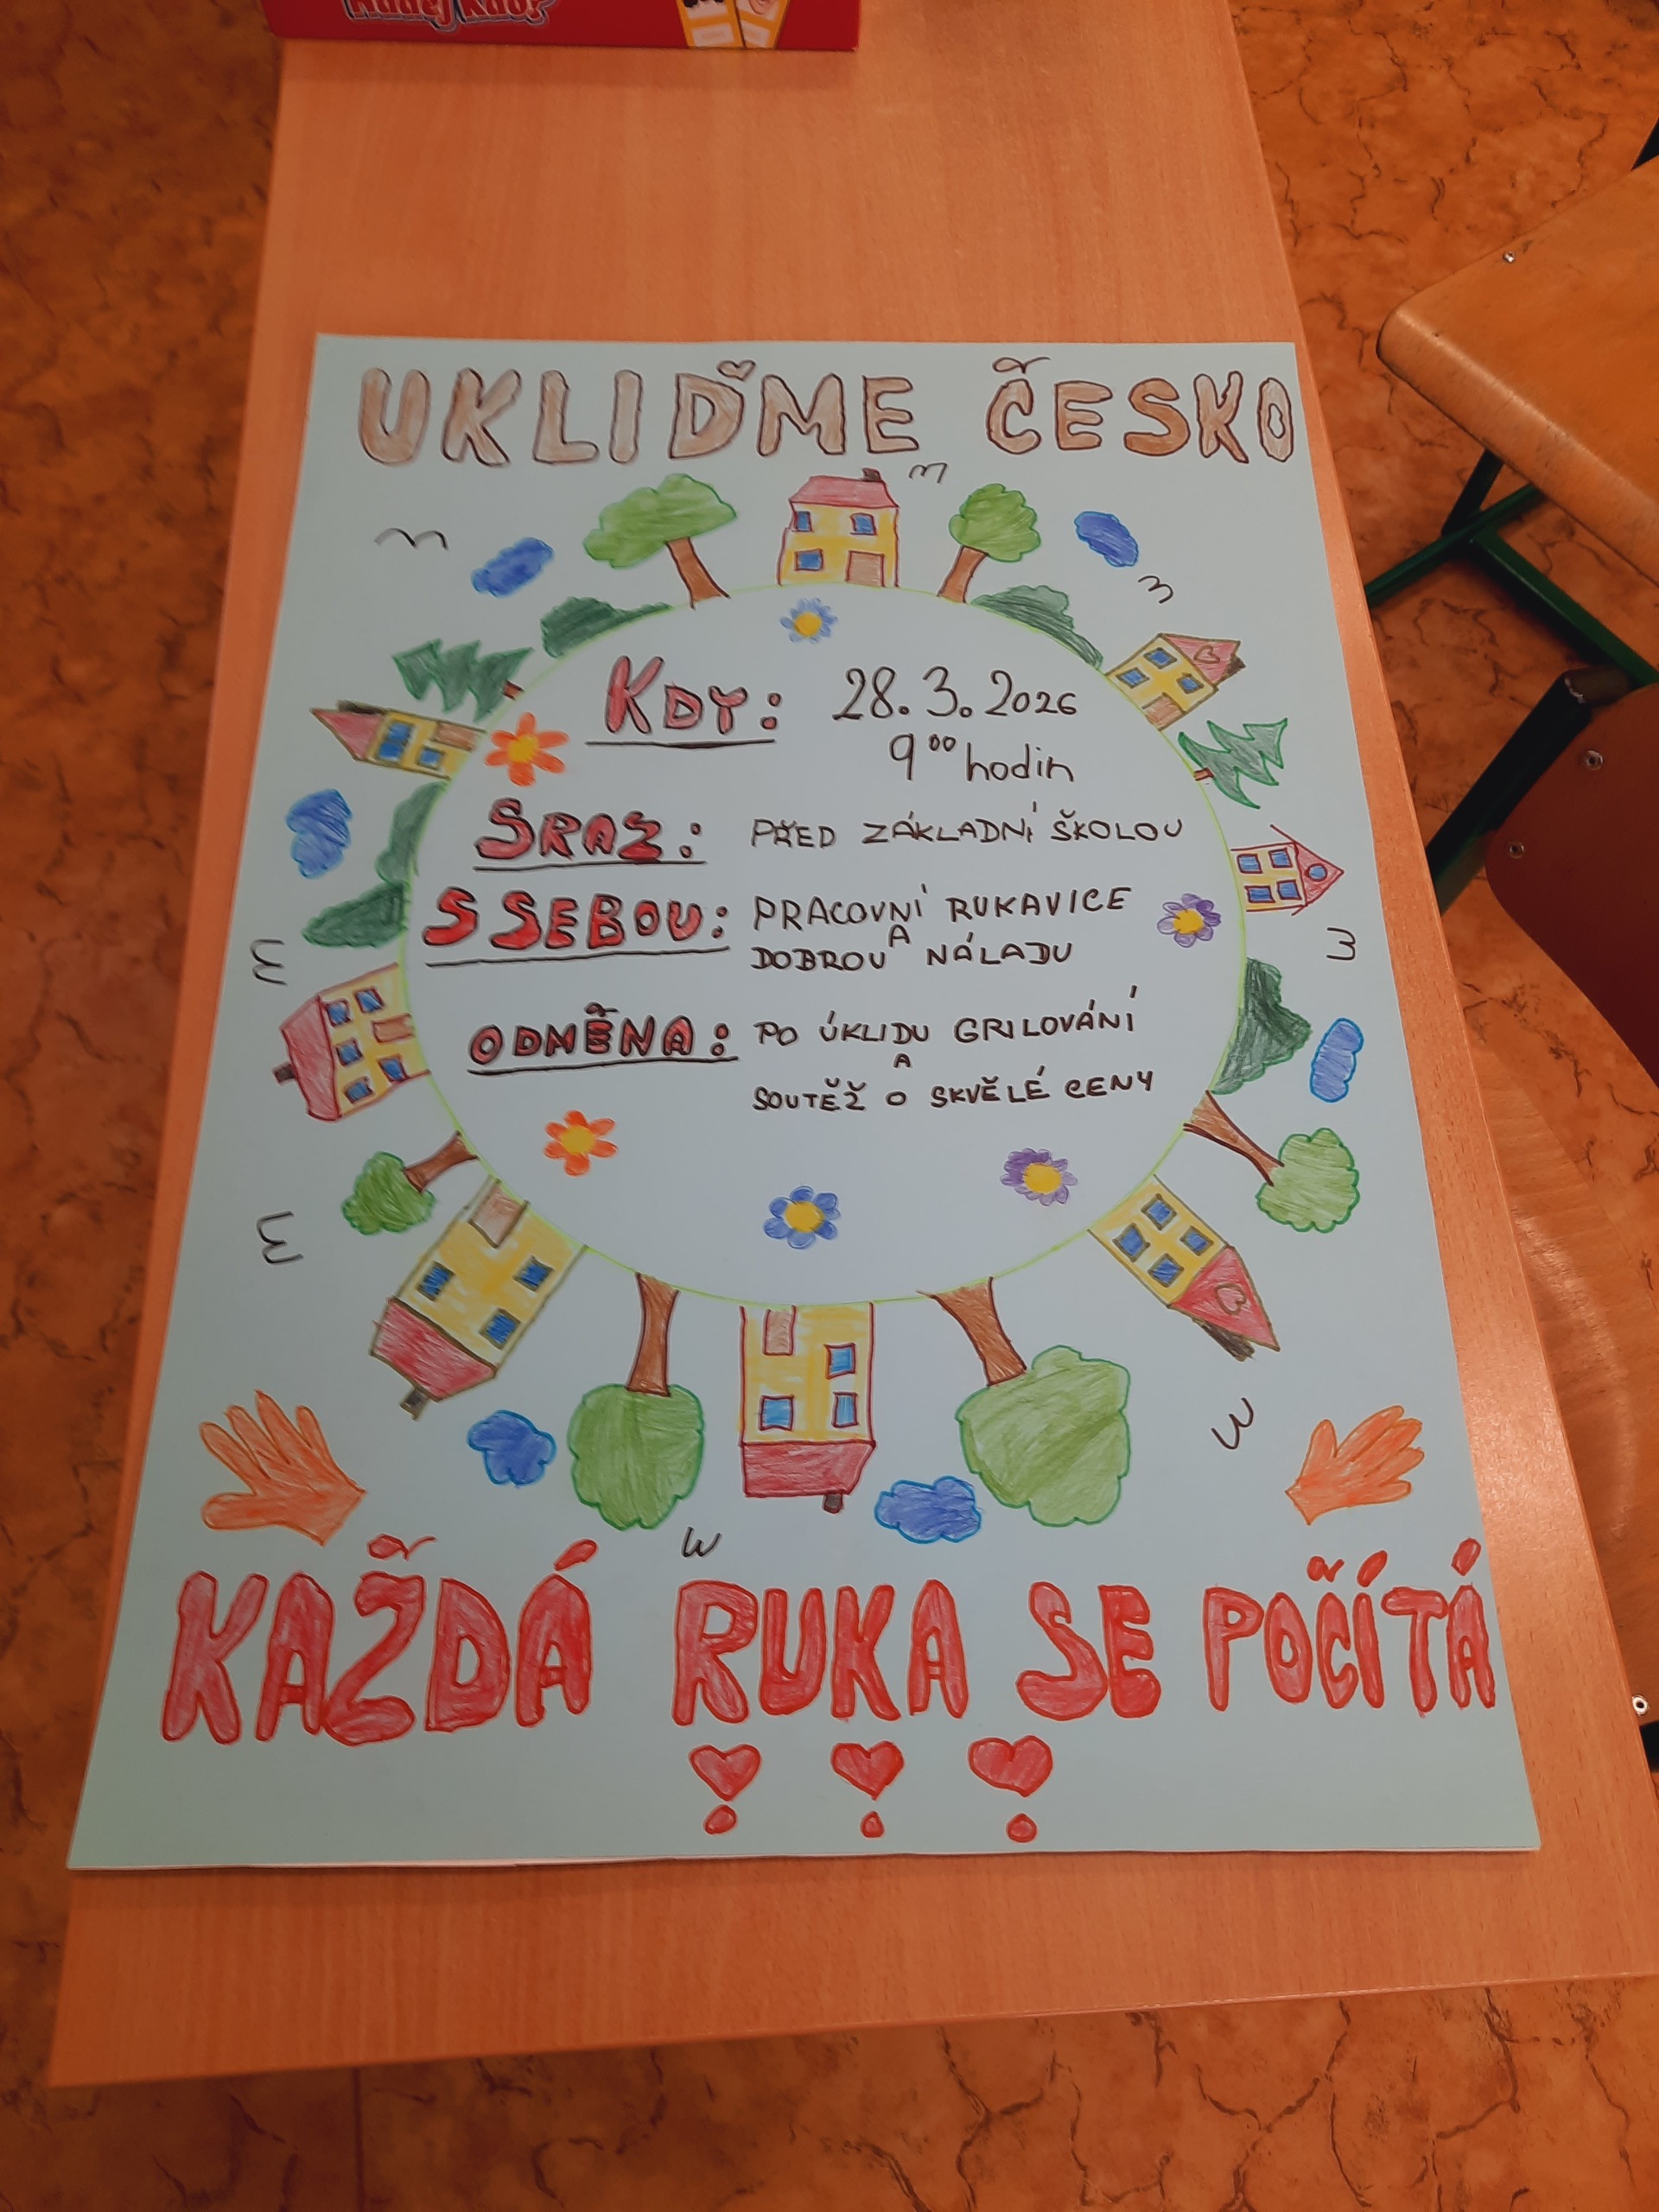 Hádej kdo?
UKLIĎME ČESKO
KDY: 28.3.2026
9⁰⁰ hodin
SRAZ: PŘED ZÁKLADNÍ ŠKOLOU
S SEBOU: PRACOVNÍ RUKAVICE
A
DOBROU NÁLADU
ODMĚNA: PO ÚKLIDU GRILOVÁNÍ
A
SOUTĚŽ O SKVĚLÉ CENY
KAŽDÁ RUKA SE POČÍTÁ